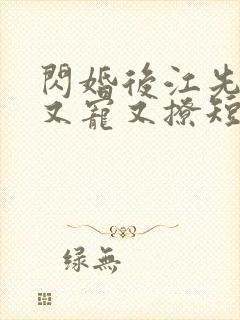 閃婚後江先
又寵又撩短
绿無